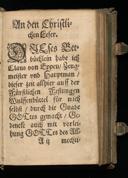 An den Christli-
chen Leser.
DIeses Bet-
büchlein habe ich
Claus von Eppen/ Zeug-
meister und Hauptman/
dieser zeit alhier auff der
Fürstlichen Festungen
Wulfenbüttel für mich
selbst/ durch die Gnade
GOttes gemacht/
Gebete auch mit verlei-
hung GOttes des All-
A ij